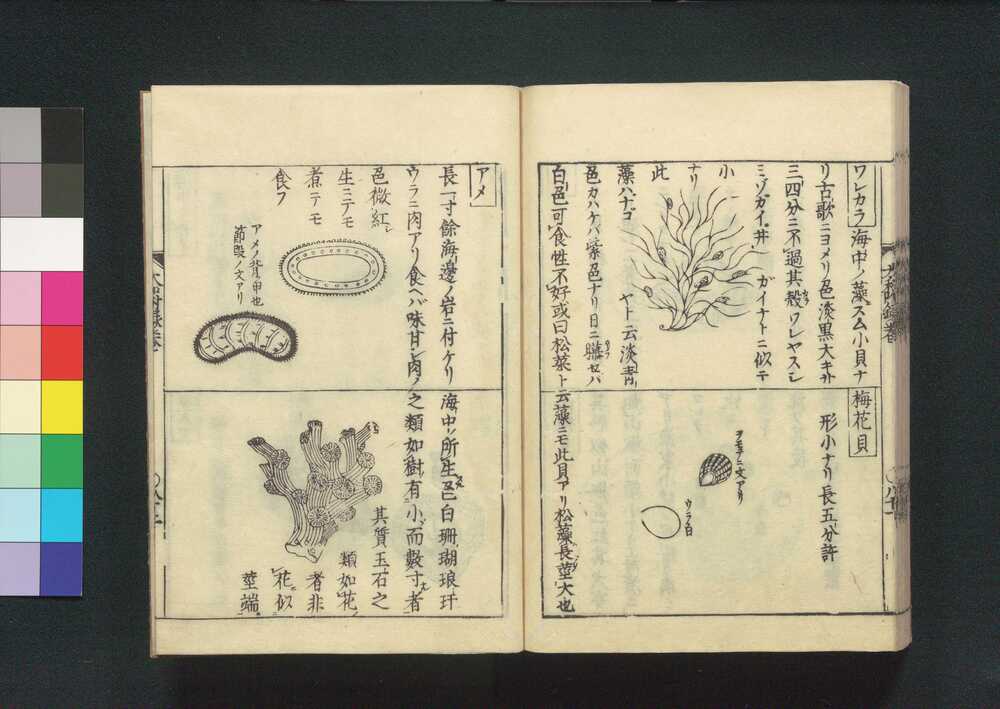 ワレカラ 海中ノ藻ニスム小貝ナ
リ古歌ニヨメリ色淡黒大キサ
三四分ニ不過其殻ワレヤスシ
ミゾガイ井ガイナトニ似テ
小ナリ
此藻ハナゴヤト云淡青
色カハケバ紫色ナリ日ニ
白色可食性不好或曰松菜ト云藻ニモ此貝アリ松藻長莖大也
梅花貝
形小ナリ長五分許
ヲモテニ文アリ
ウラ白
アメ
長一寸餘海邊ノ岩ニ付ケリ
ウラニ肉アリ食ヘバ味甘シ肉ノ
色微紅シ
生ニテモ
煮テモ
食フ
アメノ背甲也
節段ノ文アリ
海中ノ所生色白珊瑚琅玕
之類如樹有小而數寸者
其質玉石之
類如花
者非
花似
莖端